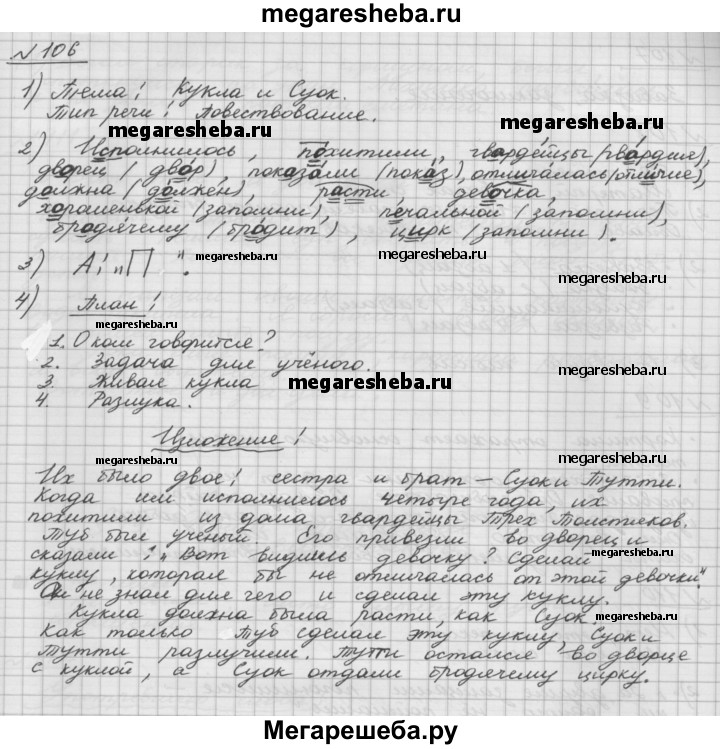 megaresheba.ru
№ 106
1) Тема: Кукла и Суок.
Тип речи: Повествование.
megaresheba.ru
megaresheba.ru
2) Исполнилось, похитили, гвардейцы (гвардия),
дворец (двор), показали (показ), отличалась (отличие),
должна (должен), расти, девочка,
хорошенькой (запомни), печальной (запомни),
бродячему (бродит), цирк (запомни).
3) А: „П".
megaresheba.ru
megaresheba.ru
4) План:
megaresheba.ru
1. О ком говорится?
2. Задача для учёного.
3. Живая кукла
megaresheba.ru
4. Разлука.
Изложение:
megaresheba.ru
Их было двое: сестра и брат – Суок и Тутти.
Когда им исполнилось четыре года, их
похитили из дома гвардейцы Трех Толстяков.
Туб был ученый. Его привезли во дворец и
сказали: „Вот видишь девочку? Сделай
megaresheba.ru
куклу, которая бы не отличалась от этой девочки".
Он не знал для чего и сделал эту куклу.
Кукла должна была расти, как Суок.
megaresheba.ru
Как только Туб сделал эту куклу, Суок и
Тутти разлучили. Тутти остался во дворце
с куклой, а Суок отдали бродячему цирку.
megaresheba.ru
Мегарешеба.ру